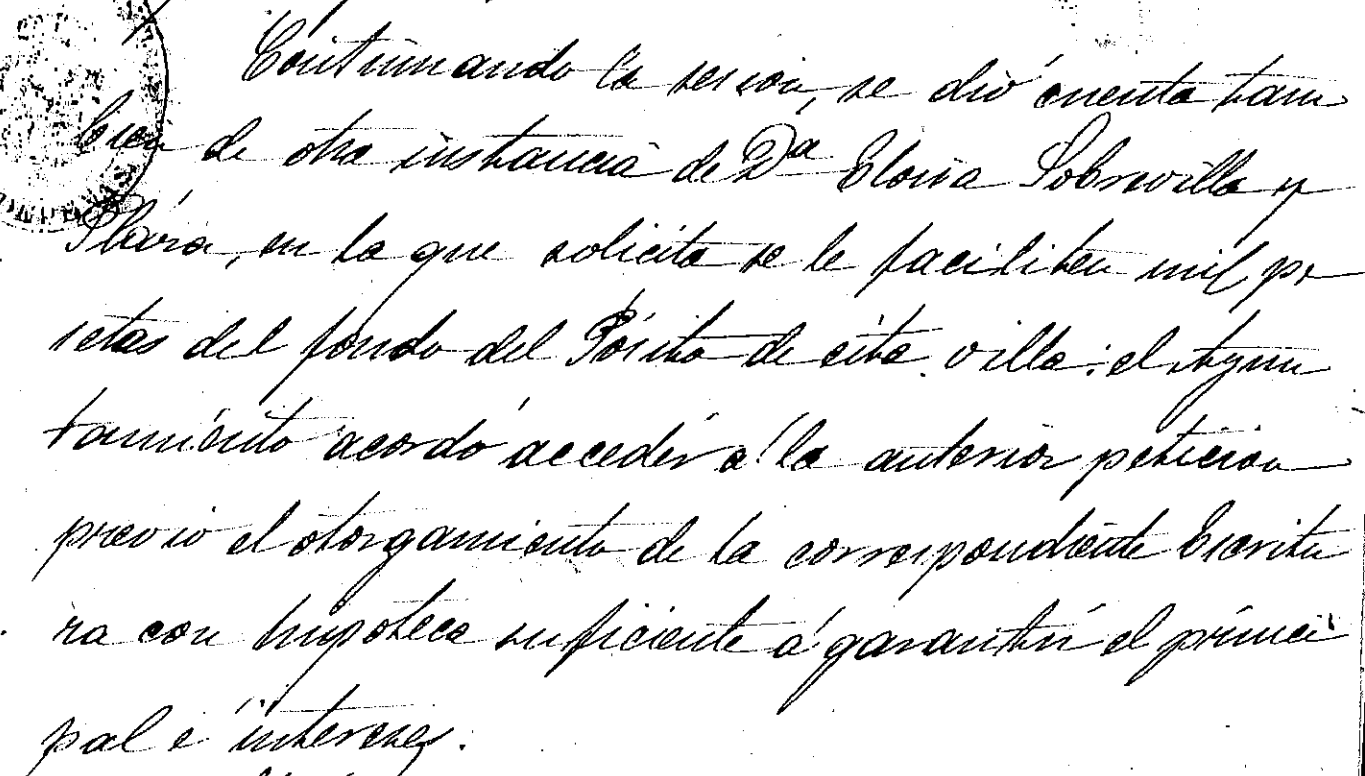 Continuando la sesion, se dió cuenta tam
bien de otra instancia de Dª Eloisa Sobrevilla y
Plára, en la que solicita se le faciliten mil pe
setas del fondo del Pósito de esta villa: el Ayun
tamiento acordó acceder á la anterior peticion
previo el otorgamiento de la correspondiente Escritu
ra con hipoteca suficiente á garantir el princi
pal é intereses.